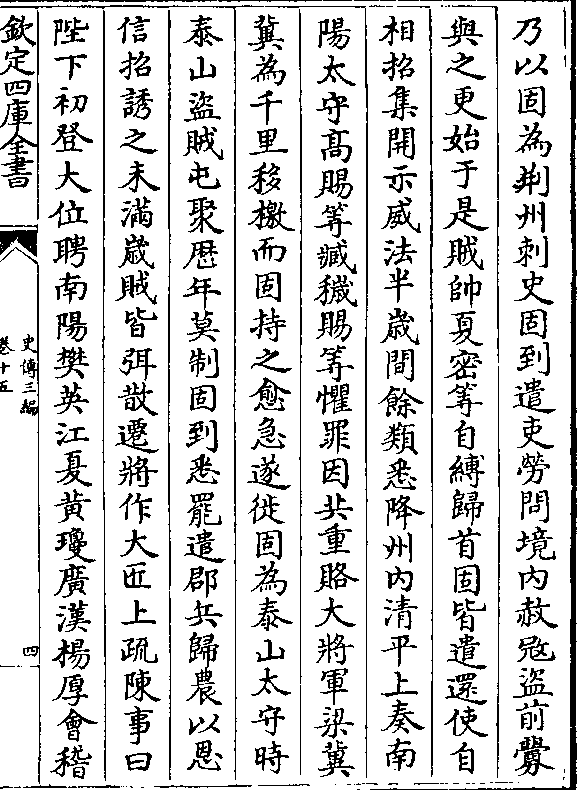 乃以固為荆州刺史固到遣吏勞問境内赦冦盜前釁
與之更始于是賊帥夏密等自縛歸首固皆遣還使自
相招集開示威法半歲間餘類悉降州内清平上奏南
陽太守髙賜等臧穢賜等懼罪因共重賂大將軍梁冀
冀為千里移檄而固持之愈急遂徙固為泰山太守時
泰山盜賊屯聚歴年莫制固到悉罷遣郡兵歸農以恩
信招誘之未滿歲賊皆弭散遷將作大匠上疏陳事曰
陛下初登大位聘南陽樊英江夏黄瓊廣漢楊厚會稽
欽定四庫全書
史傳三編
卷十五
四